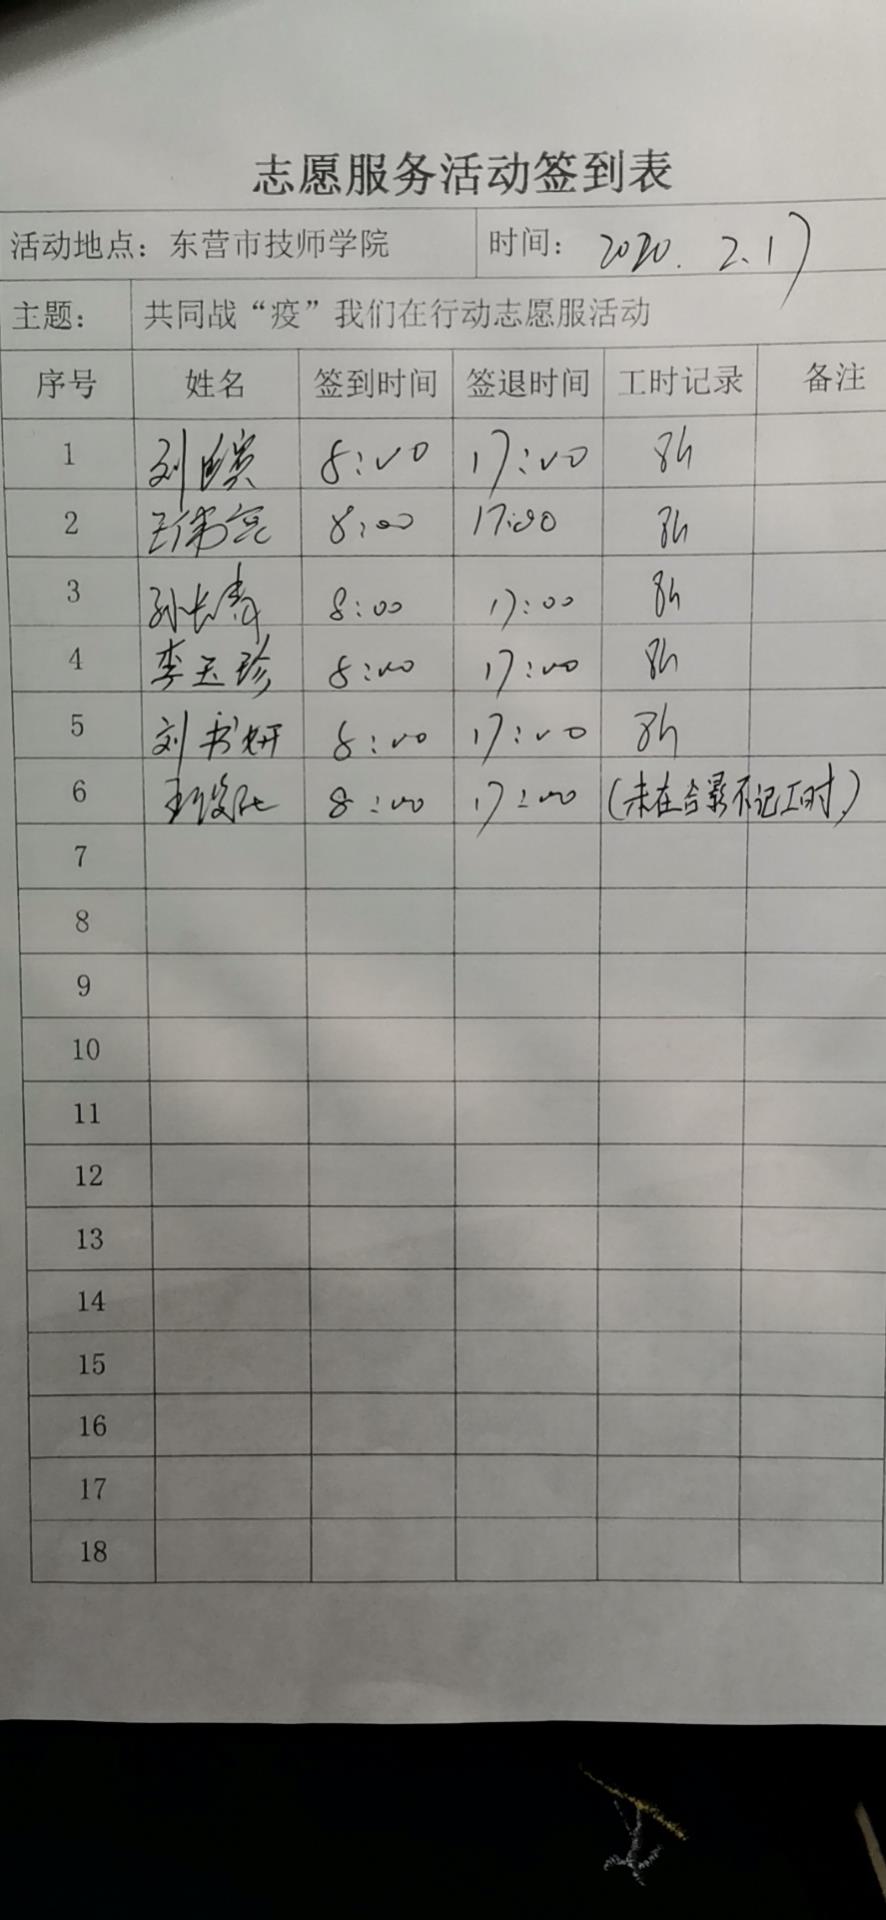 志愿服务活动签到表
活动地点：东营市技师学院 时间： 2020. 2.17
主题： 共同战“疫”我们在行动志愿服活动
序号 姓名 签到时间 签退时间 工时记录 备注
1 刘 8:00 17:00 8h
2 8:00 17:00 8h
3 孙长青 8:00 17:00 8h
4 李玉珍 8:00 17:00 8h
5 刘书妍 8:00 17:00 8h
6 王 8:00 17:00 (未在合影不记工时)
7
8
9
10
11
12
13
14
15
16
17
18